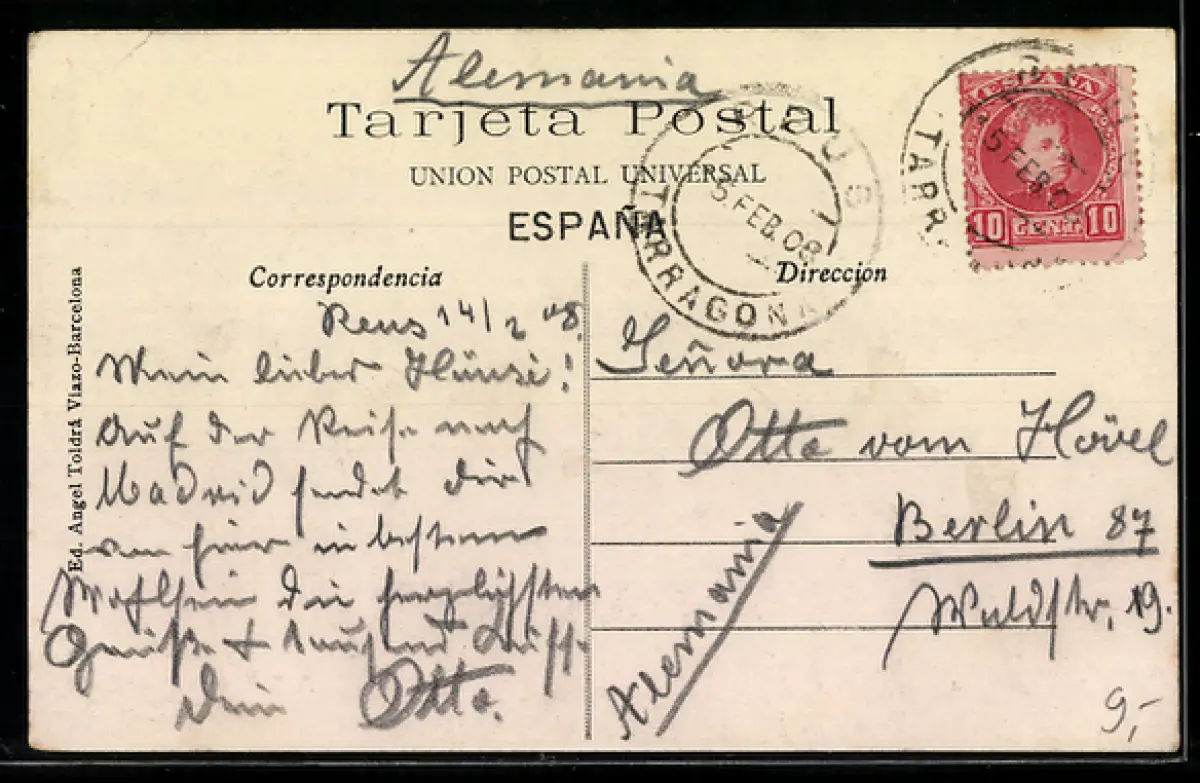 Alemania
Tarjeta Postal
UNION POSTAL UNIVERSAL
ESPAÑA
REUS
5 FEB. 08
TARRAGONA
ESPAÑA
10 CENT. 10
5 FEB. 0
TARR
Correspondencia
Direccion
Ed. Angel Toldrá Viazo-Barcelona
Reus 14/2 08.
Mein lieber Hänsi!
Auf der Reise nach
Madrid sendet dir
von hier in bestem
Wohlsein die herzlichsten
Grüße + tausend Küsse
Dein Otto.
Señora
Otto vom Hövel
Berlin 87
Waldstr. 19.
Alemania
9,-